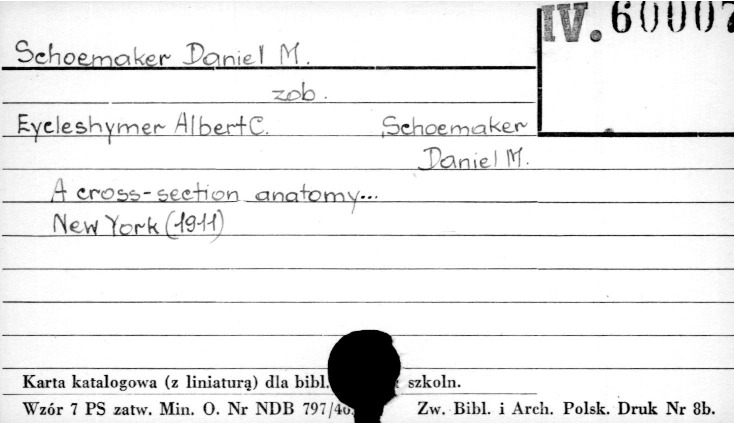 IV. 60007
Schoemaker Daniel M.
zob.
Eycleshymer Albert C. Schoemaker
Daniel M.
A cross-section anatomy...
New York (1911)
Karta katalogowa (z liniaturą) dla bibl. szkoln.
Wzór 7 PS zatw. Min. O. Nr NDB 797/46 Zw. Bibl. i Arch. Polsk. Druk Nr 8b.